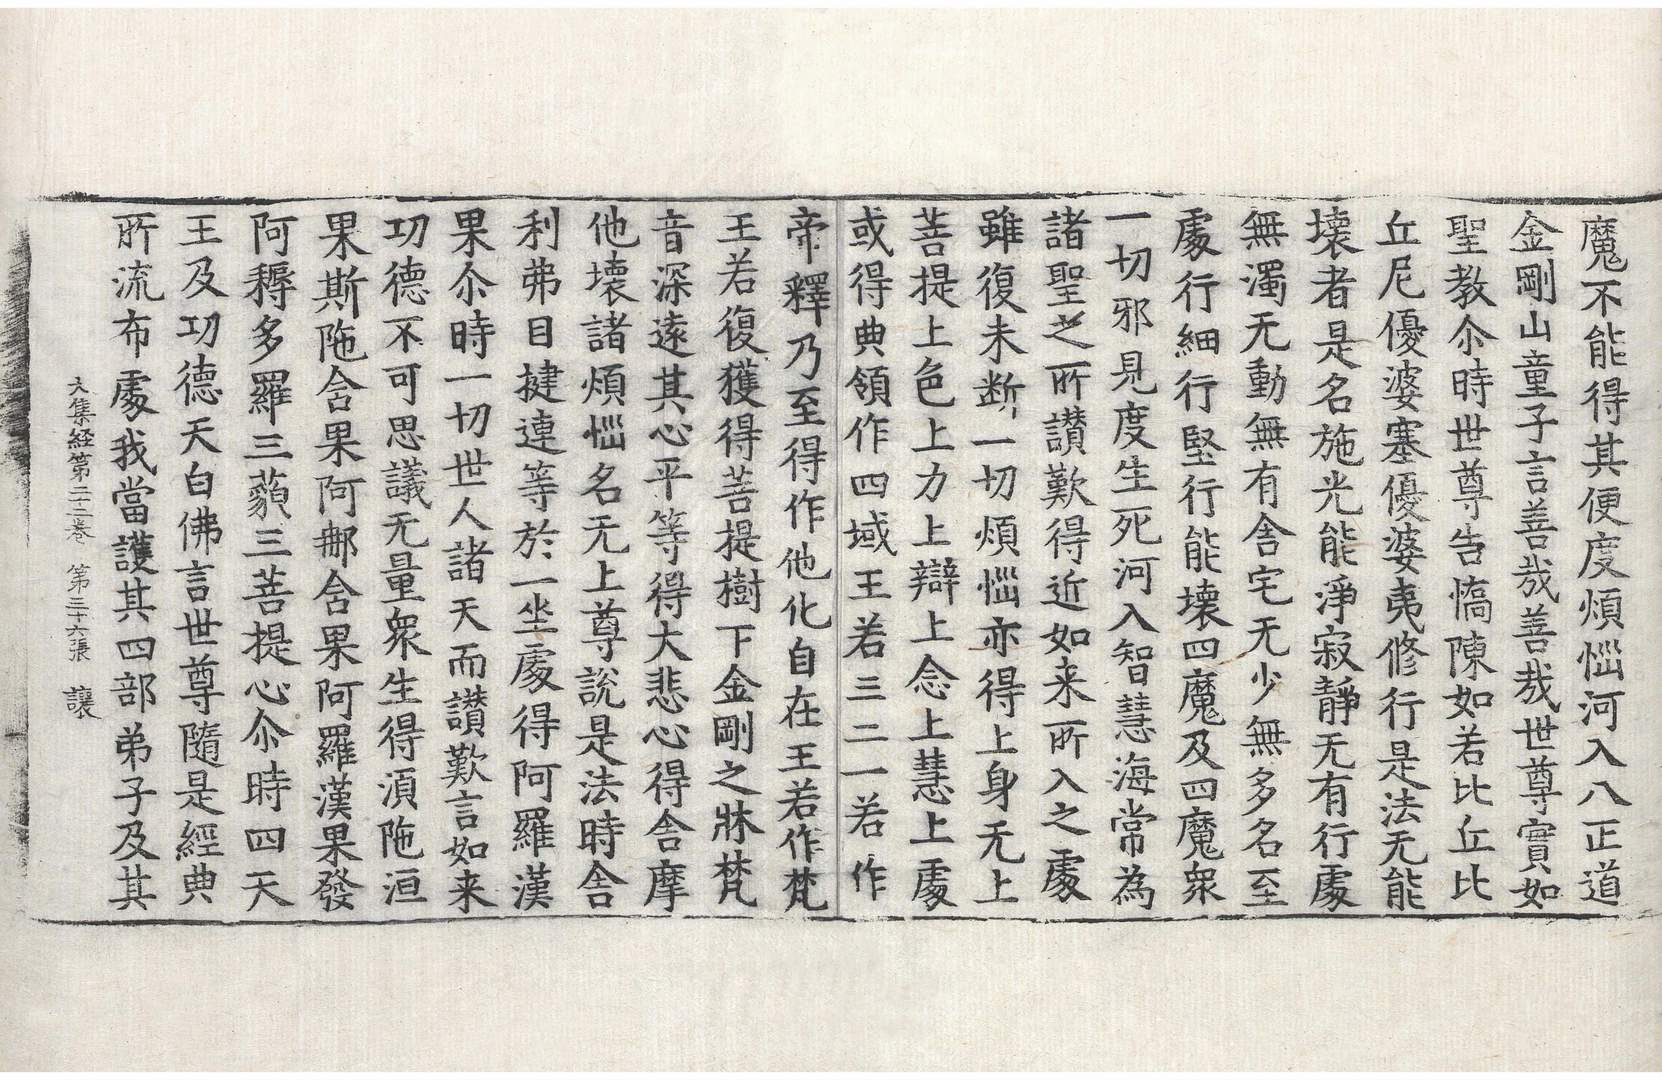 魔不能得其便度煩惱河入八正道
金剛山童子言善哉善哉世尊實如
聖教尒時世尊告憍陳如若比丘比
丘尼優婆塞優婆夷修行是法无能
壞者是名施光能淨寂靜无有行處
無濁无動無有舍宅无少無多名至
處行細行堅行能壞四魔及四魔衆
一切邪見度生死河入智慧海常為
諸聖之所讃歎得近如来所入之處
雖復未断一切煩惱亦得上身无上
菩提上色上力上辯上念上慧上處
或得典領作四域王若三二一若作
帝釋乃至得作他化自在王若作梵
王若復獲得菩提樹下金剛之牀梵
音深遠其心平等得大悲心得舍摩
他壞諸煩惱名无上尊說是法時舍
利弗目揵連等於一坐處得阿羅漢
果尒時一切世人諸天而讃歎言如来
功德不可思議无量衆生得湏陁洹
果斯陁含果阿那含果阿羅漢果發
阿耨多羅三藐三菩提心尒時四天
王及功德天白佛言世尊隨是經典
所流布處我當護其四部弟子及其
大集経第二十二卷 第三十六張 讓